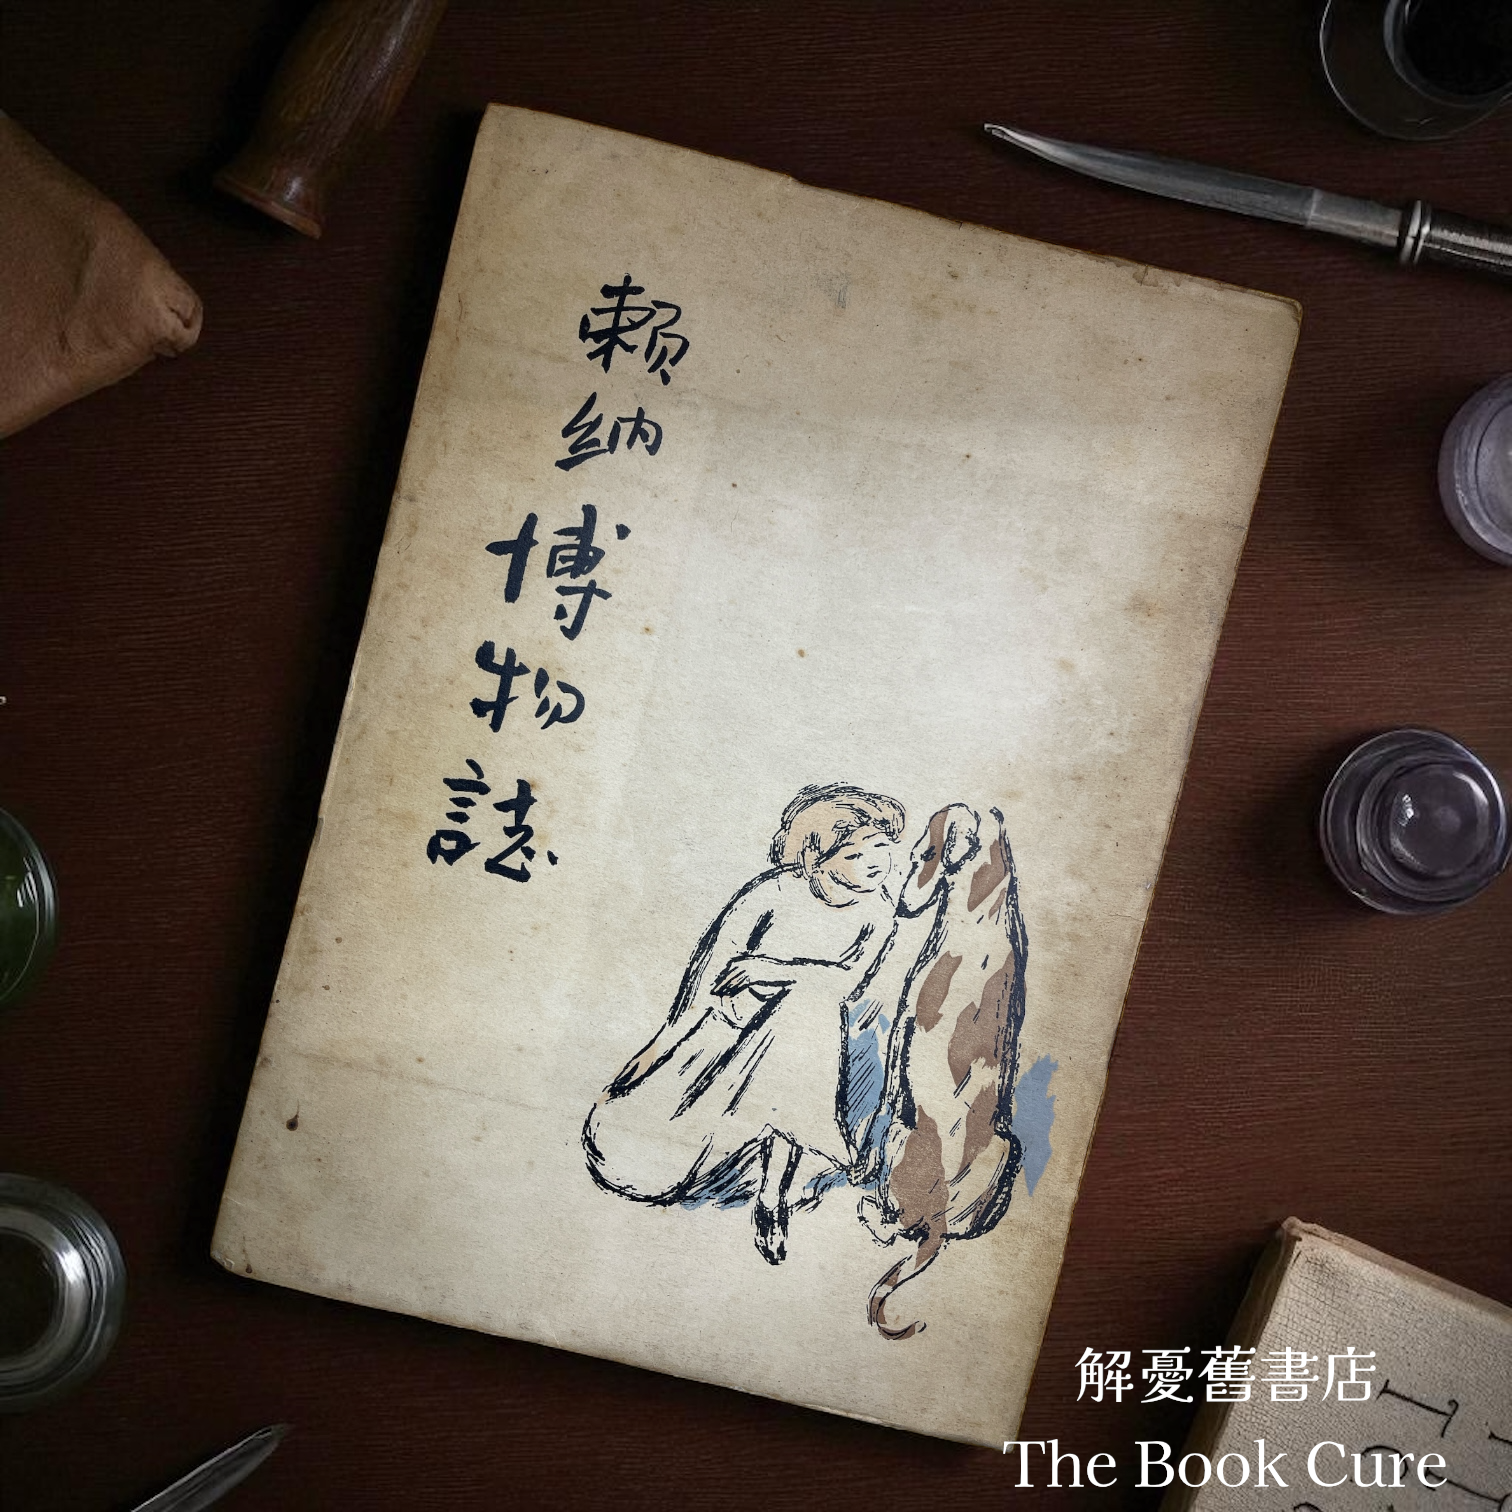 賴納博物誌
解憂舊書店
The Book Cure